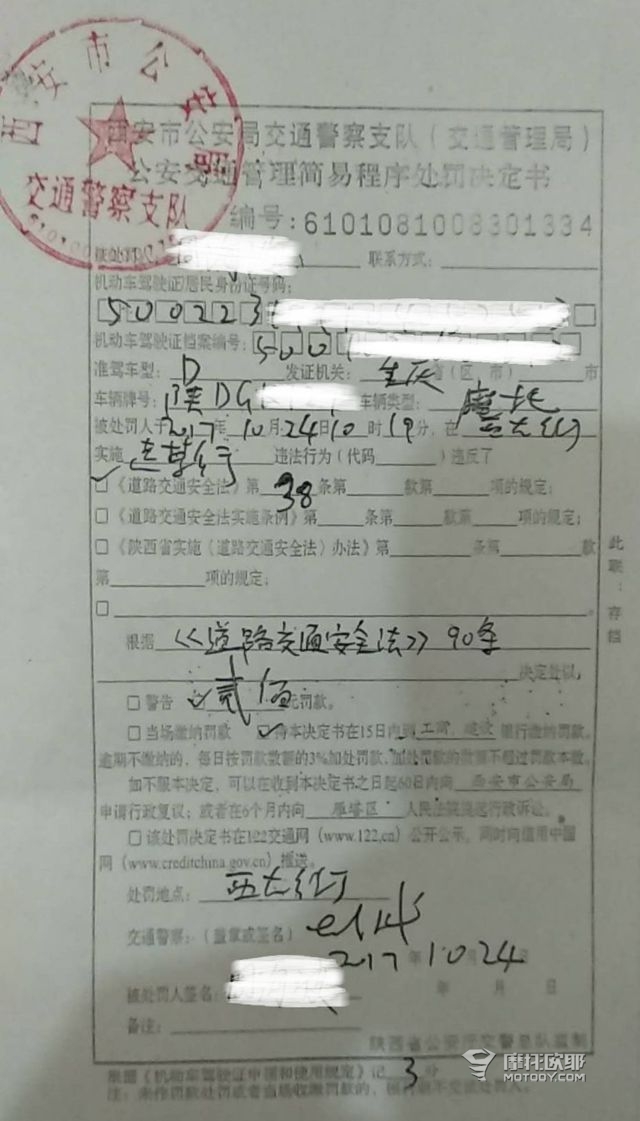 西安市公安局
交通警察支队
西安市公安局交通警察支队（交通管理局）
公安交通管理简易程序处罚决定书
编号：6101081008301334
被处罚人： 联系方式：
机动车驾驶证/居民身份证号码：
500223
机动车驾驶证档案编号：500
准驾车型：D 发证机关：重庆省（区、市） 市
车辆牌号：陕DG 车辆类型：摩托
被处罚人于2017年10月24日10时19分，在
实施 违法行为（代码 ）违反了
□《道路交通安全法》第38条第 款第 项的规定；
□《道路交通安全法实施条例》第 条第 款第 项的规定；
□《陕西省实施〈道路交通安全法〉办法》第 条第 款
第 项的规定；
□ 。
根据《道路交通安全法》90条
决定处以：
□警告 ✓贰佰元罚款。
□当场缴纳罚款 ✓持本决定书在15日内到工商、建设银行缴纳罚款。
逾期不缴纳的，每日按罚款数额的3%加处罚款，加处罚款的数额不超过罚款本数。
如不服本决定，可以在收到本决定书之日起60日内向 西安市公安局
申请行政复议；或者在6个月内向 雁塔区 人民法院提起行政诉讼。
□该处罚决定书在122交通网（www.122.cn）公开公示，同时向信用中国
网（www.creditchina.gov.cn）推送。
处罚地点：
交通警察：（盖章或签名）
2017年10月24日
被处罚人签名： 年 月 日
备注：
陕西省公安厅交警总队监制
根据《机动车驾驶证申领和使用规定》记3分
注：未作罚款处罚或者当场收缴罚款的，
此联：存档
摩托欧耶
MOTOOY.COM